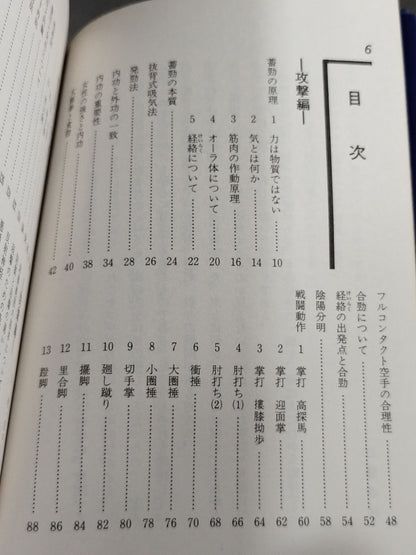 6
目次
―攻撃編―
蓄勁の原理
1 力は物質ではない……10
2 気とは何か……14
3 筋肉の作動原理……16
4 オーラ体について……20
5 経絡について……22
けいらく
蓄勁の本質……24
抜背式吸気法……26
発勁法……28
内功と外功の一致……34
内功の重要性……38
の強さと内功……40
42
フルコンタクト空手の合理性……48
合勁について……52
経絡の出発点と合勁……54
けいらく
陰陽分明……58
戦闘動作
1 掌打 高探馬……60
2 掌打 迎面掌……62
3 掌打 摟膝拗歩……64
4 肘打ち(1)……66
5 肘打ち(2)……68
6 衝捶……70
7 大圏捶……76
8 小圏捶……78
9 切手掌……80
10 廻し蹴り……82
11 擺脚……84
12 里合脚……86
13 蹬脚……88